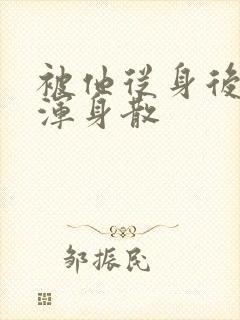 被他從身後
渾身散
邹振民